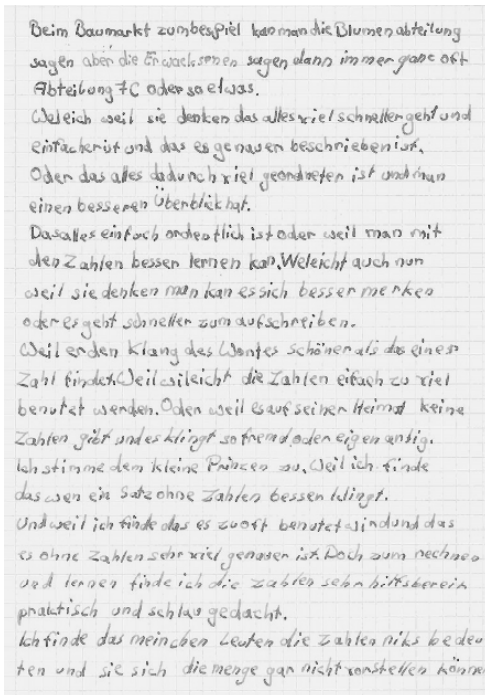 Beim Baumarkt zumbespiel kan man die Blumenabteilung
sagen aber die Erwacksenen sagen dann immer ganc oft
Abteilung 7C oder so etwas.
Weleich weil sie denken das alles viel schneller geht und
einfacher ist und das es genauer beschrieben ist.
Oder das alles dadurch viel geordneten ist und man
einen besseren Überblick hat.
Das alles einfach ordentlich ist oder weil man mit
den Zahlen besser lernen kan. Weleicht auch nur
weil sie denken man kan es sich besser merken
oder es geht schneller zum aufschreiben.
Weil er den Klang des Wortes schöner als das einer
Zahl findet. Weil vileicht die Zahlen eifach zu viel
benutet werden. Oder weil es auf seiner Heimat keine
Zahlen gibt und es klingt so fremd oder eigenartig.
Ich stimme dem kleine Prinzen zu. Weil ich finde
das wen ein Satz ohne Zahlen besser klingt.
Und weil ich finde das es zu oft benutet wird und das
es ohne Zahlen sehr viel genauer ist. Doch zum rechnen
und lernen finde ich die Zahlen sehr hilfsbereit
praktisch und schlau gedacht.
Ich finde das meinchen Leuten die Zahlen niks bedeu
ten und sie sich die menge gar nicht vorstellen könne